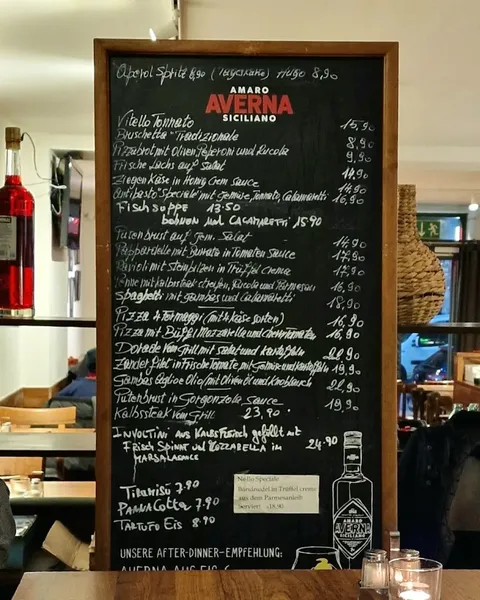 Aperol Spritz 8,90 Hugo 8,90
AMARO
AVERNA
SICILIANO
Vitello Tonnato 15,90
Bruschetta "Tradizionale 8,90
Pizzabrot mit Oliven, Peperoni und Rucola 9,90
Frische Lachs auf Salat 14,90
Ziegenkäse in Honig Crem sauce 14,90
Antipasto "Speciale" mit gemüse, Tonnato, Calamaretti 16,90
Fisch soppe 13:50
bohnen und CALAMARETTI 15 90
Putenbrust auf gem. Salat 14,90
Pappardelle mit Burrata in Tomaten Sauce 17,90
Ravioli mit Steinpilzen in Trüffel crema 17,90
Penne mit kalbsteak streifen, Rucola und Parmesan 16,90
Spaghetti mit gambas und Calamaretti 18,90
Pizza 4 Formaggi (mit 4 käse sorten) 16,90
Pizza mit Büffel Mozzarella und 16,90
Dorade vom Grill mit salat und kartoffeln 22,90
Zander filet in frische Tomate mit Gemüse und kartoffeln 19,90
Gambas Caglio e Olio/mit Olivenöl und Knoblauch 22,90
Putenbrust in Gorgonzola Sauce 19,90
Kalbssteak vom Grill 23,90
INVOLTINI AUS KALBSFLEISCH gefüllt mit 24.90
FRISCH SPINAT Und MOZZARELLA in
MARSALASAUCE
Tiramisu 7.90
PANNA COTTA 7.90
TARTUFO EIS 8.90
Nello Speciale
Bandnudel in Trüffel creme
aus dem Parmesanleib
Serviert
AMARO
AVERNA
SICILIANO
UNSERE AFTER-DINNER-EMPFEHLUNG:
AVERNA AUF EIS